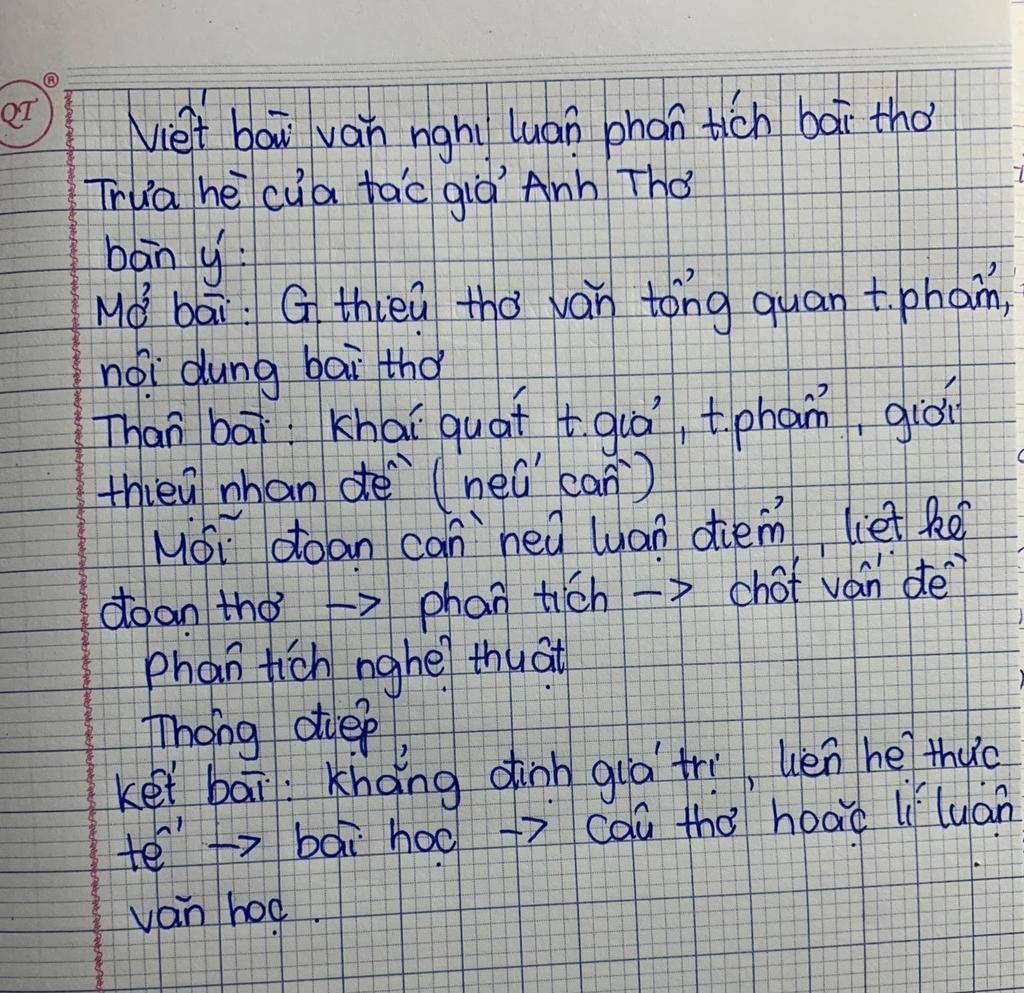 QT ®
Viết bài văn nghị luận phân tích bài thơ
Trưa hè của tác giả Anh Thơ
bàn ý:
Mở bài: G.thiệu thơ văn tổng quan t.phẩm,
nội dung bài thơ
Thân bài: Khái quát t.giả, t.phẩm, giới
thiệu nhan đề (nếu cần)
Mỗi đoạn cần nêu luận điểm, liệt kê
đoạn thơ -> phân tích -> chốt vấn đề
Phân tích nghệ thuật
Thông điệp
Kết bài: Khẳng định giá trị, liên hệ thực
tế -> bài học -> câu thơ hoặc lí luận
văn học.